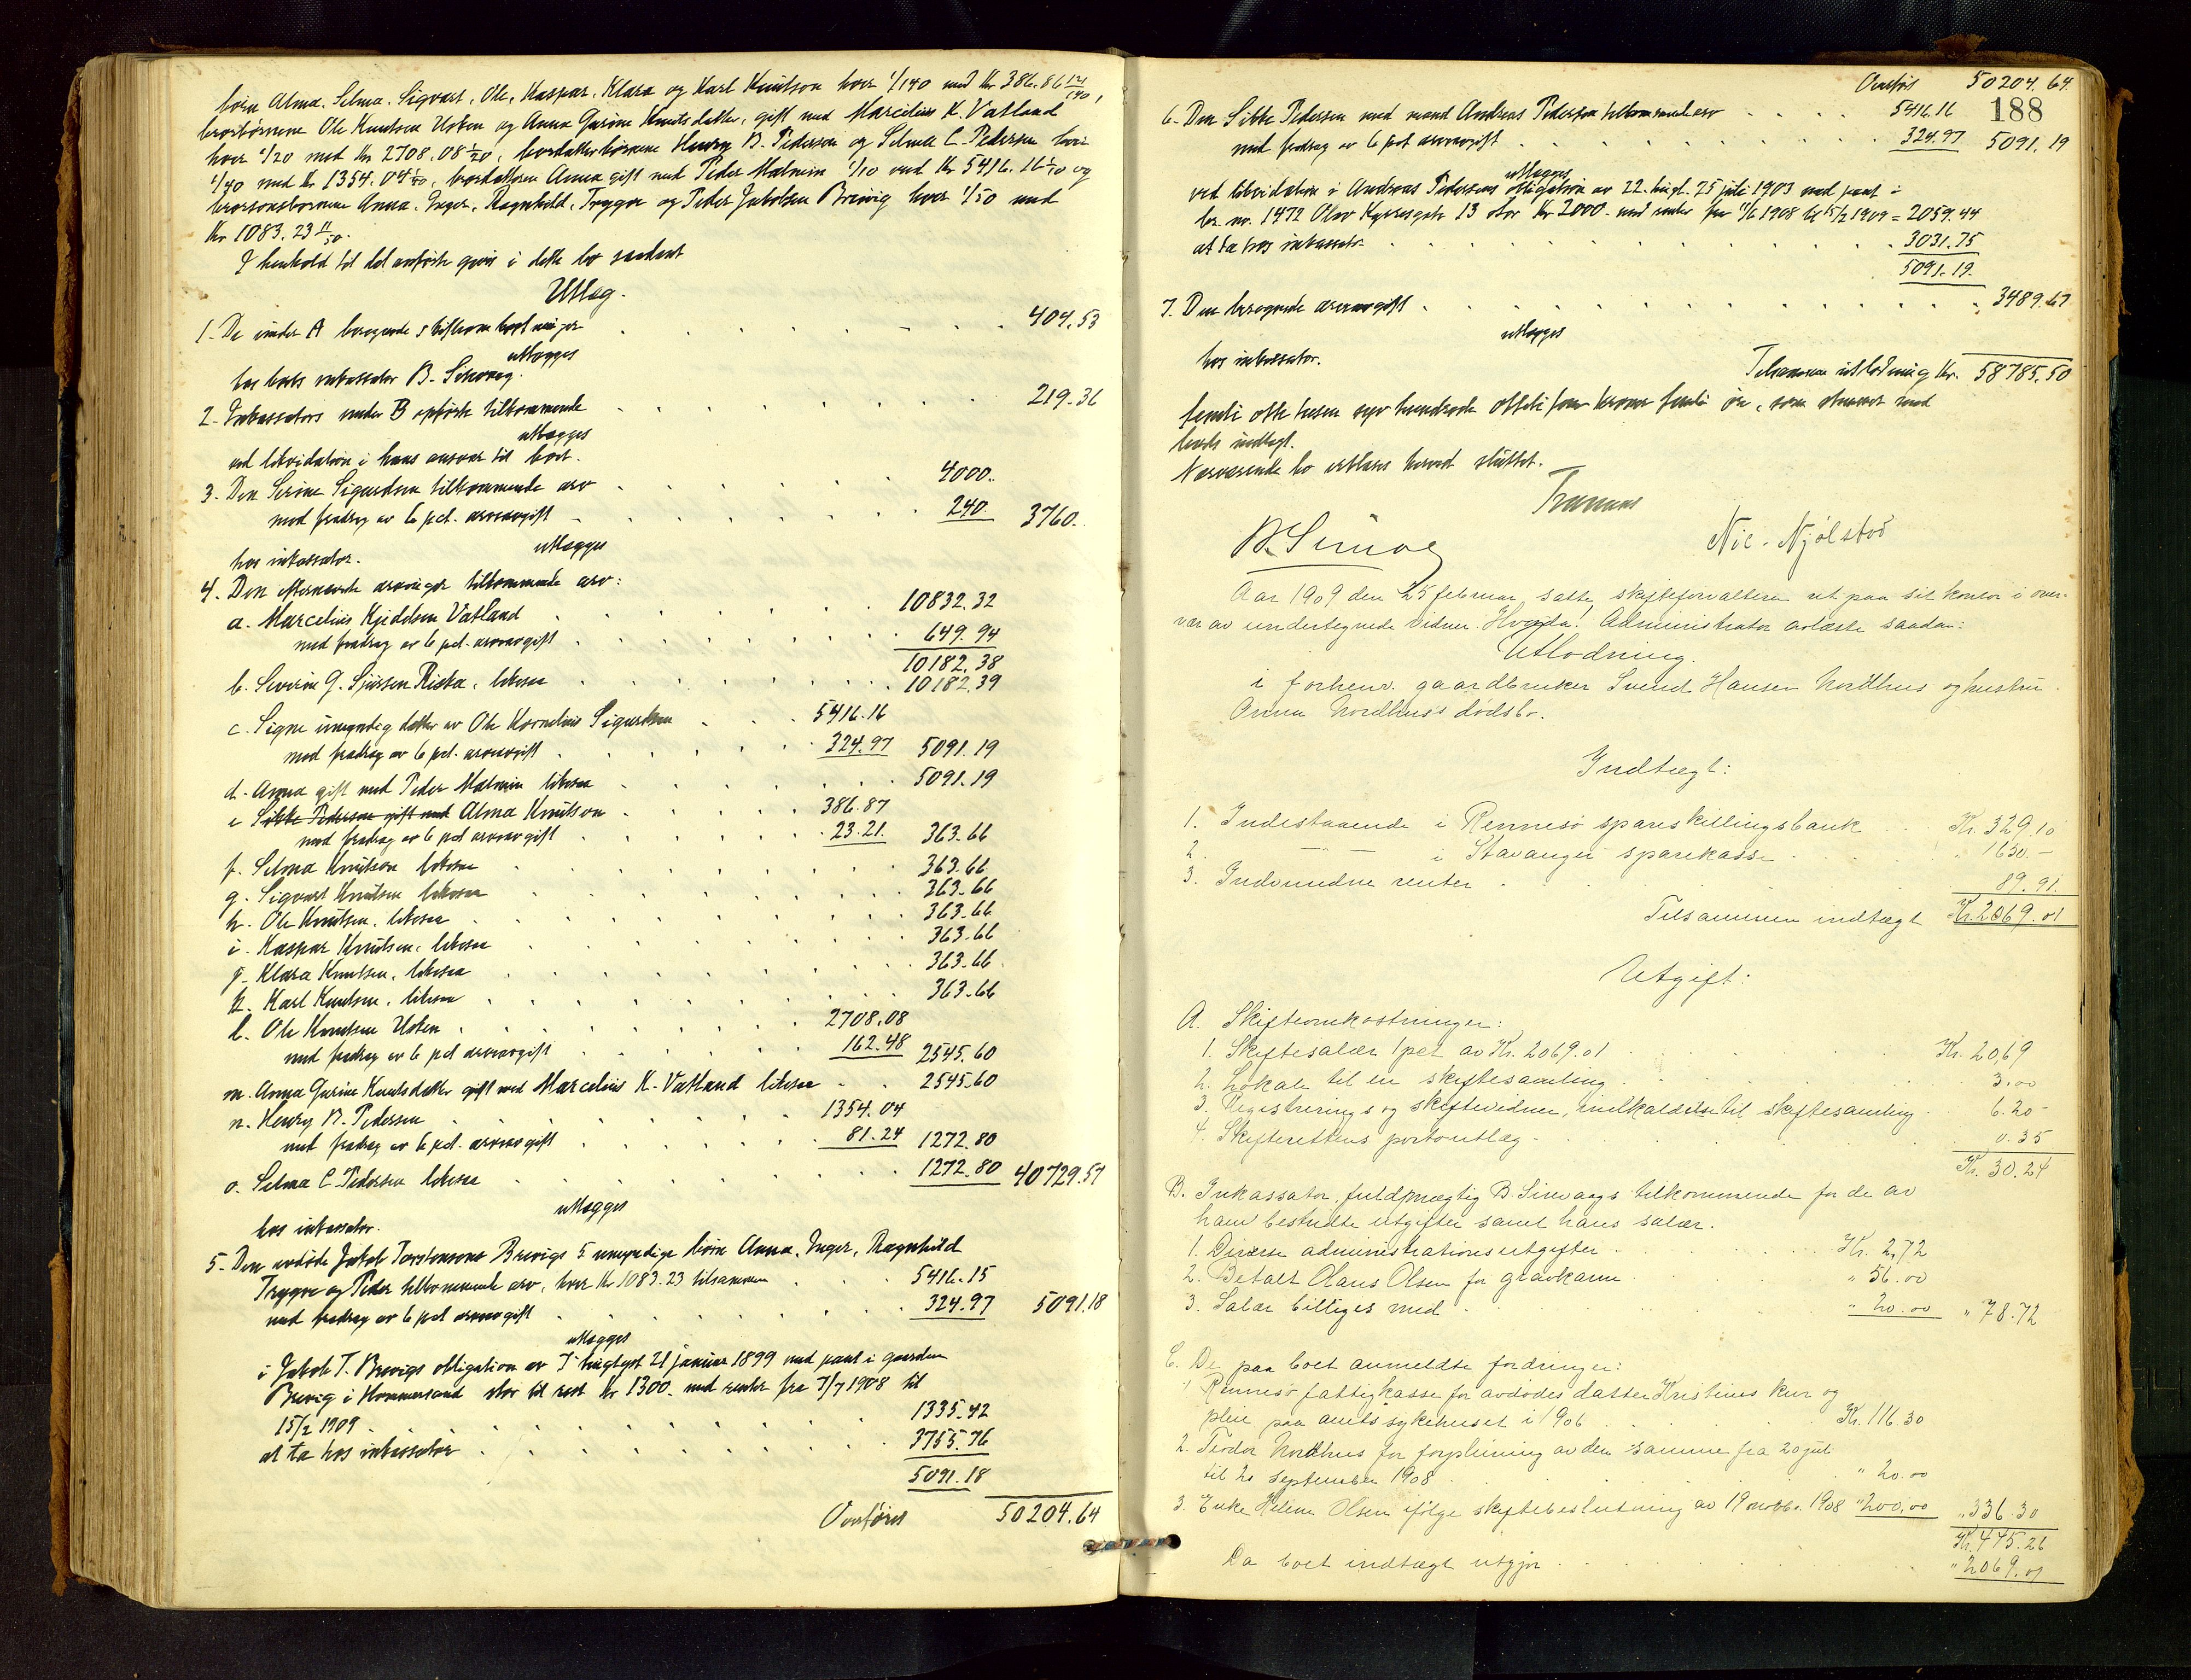 børn Alma, Selma, Sigvart, Ole, Kaspar, Klara og Karl Knutson hver 1/140 med Kr. 386.86 12/140,
brorbørnene Ole Knutsen Usken og Anna Gurine Knutsdatter, gift med Marcelius K. Vatland
hver 1/20 med Kr 2708.08 1/20, brordatterbørnene Henry B. Pedersen og Selma C. Pedersen hver
1/40 med Kr 1354.04 1/40, brordatteren Anna gift med Peder Malmin 1/10 med Kr 5416.16 1/10 og
brorsønsbørnene Anna, Inger, Ragnhild, Trygve og Peder Jakobsen Brevig hver 1/50 med
Kr 1083.23 11/50.
I henhold til det anførte gjøres i dette bo saadant
Utlæg.
1. De under A beregnede skifteomkostninger 404.53
utlægges
hos boets inkassator B. Sirevaag.
2. Inkassators under B opførte tilkommende 219.36
utlægges
ved likvidation i hans ansvar til boet.
3. Den Serine Sigurdsen tilkommende arv 4000.
med fradrag av 6 pct. arveavgift 240. 3760.
utlægges
hos inkassator.
4. Den efternævnte arvinger tilkommende arv:
a. Marcelius Kjeldsen Vatland 10832.32
med fradrag av 6 pct. arveavgift 649.94
10182.38
b. Severin G. Sjursen Riska, likesaa 10182.39
c. Signe umyndig datter av Ole Kornelius Sigurdsen 5416.16
med fradrag av 6 pct. arveavgift 324.97 5091.19
d. Anna gift med Peder Malmin likesaa 5091.19
e. Sikke Pedersen gift med Alma Knutson 386.87
med fradrag av 6 pct arveavgift 23.21 363.66
f. Selma Knutson likesaa 363.66
g. Sigvart Knutsen likesaa 363.66
h. Ole Knutsen, likesaa 363.66
i. Kaspar Knutsen, likesaa 363.66
j. Klara Knutsen, likesaa 363.66
k. Karl Knutsen, likesaa 363.66
l. Ole Knutsen Usken 2708.08
med fradrag av 6 pct arveavgift 162.48 2545.60
m. Anna Gurine Knutsdatter gift med Marcelius K. Vatland likesaa 2545.60
n. Henry B. Pedersen 1354.04
med fradrag av 6 pct. arveavgift 81.24 1272.80
o. Selma C. Pedersen likesaa 1272.80 40729.57
utlægges
hos inkassator.
5. Den avdøde Jakob Torstensons Brevigs 5 umyndige børn Anna, Inger, Ragnhild
Trygve og Peder tilkommende arv, hver Kr 1083.23 tilsammen 5416.15
med fradrag av 6 pct arveavgift 324.97 5091.18
utlægges
i Jakob T. Brevigs obligation av 7 tinglyst 21 januar 1899 med pant i gaarden
Brevig i Hommersand stor til rest Kr 1300. med renter fra 7/7 1908 til
15/2 1909 1335.42
at ta hos inkassator 3755.76
5091.18
Overføres 50204.64
Overført 50204.64
188
6. Den Sikke Pedersen med mand Andreas Pedersen tilkommende arv 5416.16
med fradrag av 6 pct arveavgift 324.97 5091.19
utlægges
ved likvidation i Andreas Pedersens obligation av 22. tingl. 25 juli 1903 med pant i
br. nr. 1472 Olav Kyrresgate 13 stor Kr 2000. med renter fra 11/6 1908 til 15/2 1909 = 2059.44
at ta hos inkassator 3031.75
5091.19
7. Den beregnede arveavgift 3489.67
utlægges
hos inkassator.
Tilsammen utlodning Kr. 58785.50
femti otte tusen syv hundrede ottiti fem kroner femti øre, som stemmer med
boets indtægt.
Nærværende bo erklæres herved sluttet.
B. Sirevaag
Nic. Njølstad
Aar 1909 den 25 februar satte skifteforvalteren ret paa sit kontor i over-
vær av undertegnede vidner. Hvorda! Administrator avlæste saadan:
Utlodning.
i forhenv. gaardbruker Svend Hansen Nordhus og hustru
Anna Nordhus's dødsbo.
Indtægt:
1. Indestaaende i Rennesø spareskillingsbank Kr. 329.10
2. — " — i Stavanger sparekasse " 1650.—
3. Indvundne renter 89.91
Tilsammen indtægt Kr. 2069.01
Utgift:
A. Skifteomkostninger:
1. Skiftesalær 1 pct av Kr. 2069.01 Kr. 20,69
2. Lokale til en skiftesamling 3.00
3. Registrerings og skiftevidner, indkaldelse til skiftesamling 6.20
4. Skifterettens portoutlæg 0.35
Kr. 30.24
B. Inkassator, fuldmægtig B. Sirevaags tilkommende for de av
ham bestridte utgifter samt hans salær.
1. Diverse administrationsutgifter Kr. 2,72
2. Betalt Hans Olsen for gravkarm " 56.00
3. Salær billiges med " 20.00 " 78.72
C. De paa boet anmeldte fordringer:
1 Rennesø fattigkasse for avdødes datter Kristines kur og
pleie paa amtssykehuset i 1906 Kr. 116.30
2. Teodor Nordhus for forpleining av den samme fra 20 juli
til 20 september 1908 " 20.00
3. Enke Helene Olsen ifølge skiftebeslutning av 19 novbr. 1908 " 200.00 " 336.30
Kr. 445.26
Da boet indtægt utgjør " 2069.01